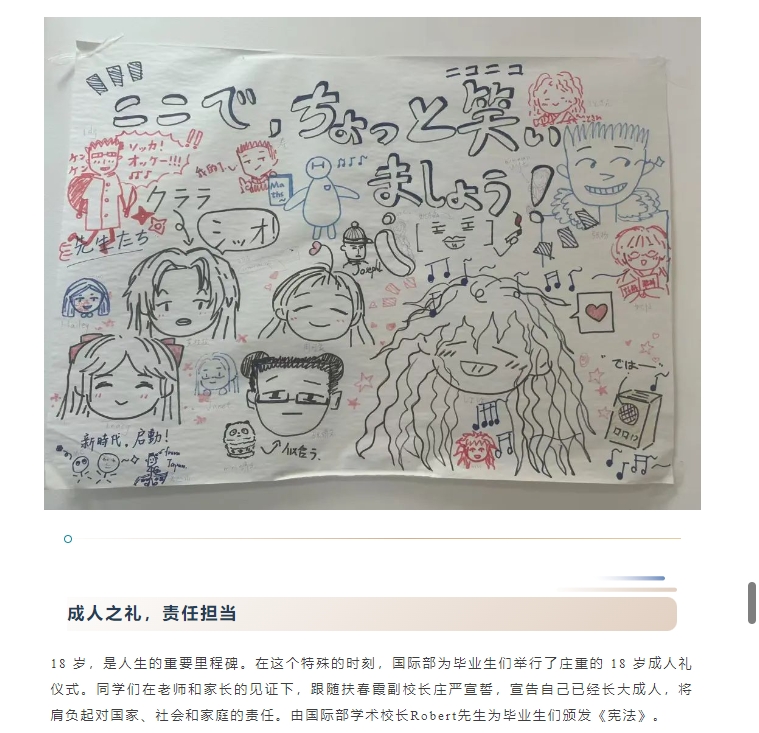 ニコニコ
ここで，ちょっと笑い
ましょう！
ソッカ！
オッケー!!!
ケン
ケン
Ma
the
クララ
ミッオ！
先生たち
Joseph
では——"
新時代，启動！
from
似合う．
成人之礼，责任担当
18 岁，是人生的重要里程碑。在这个特殊的时刻，国际部为毕业生们举行了庄重的 18 岁成人礼
仪式。同学们在老师和家长的见证下，跟随扶春霞副校长庄严宣誓，宣告自己已经长大成人，将
肩负起对国家、社会和家庭的责任。由国际部学术校长Robert先生为毕业生们颁发《宪法》。